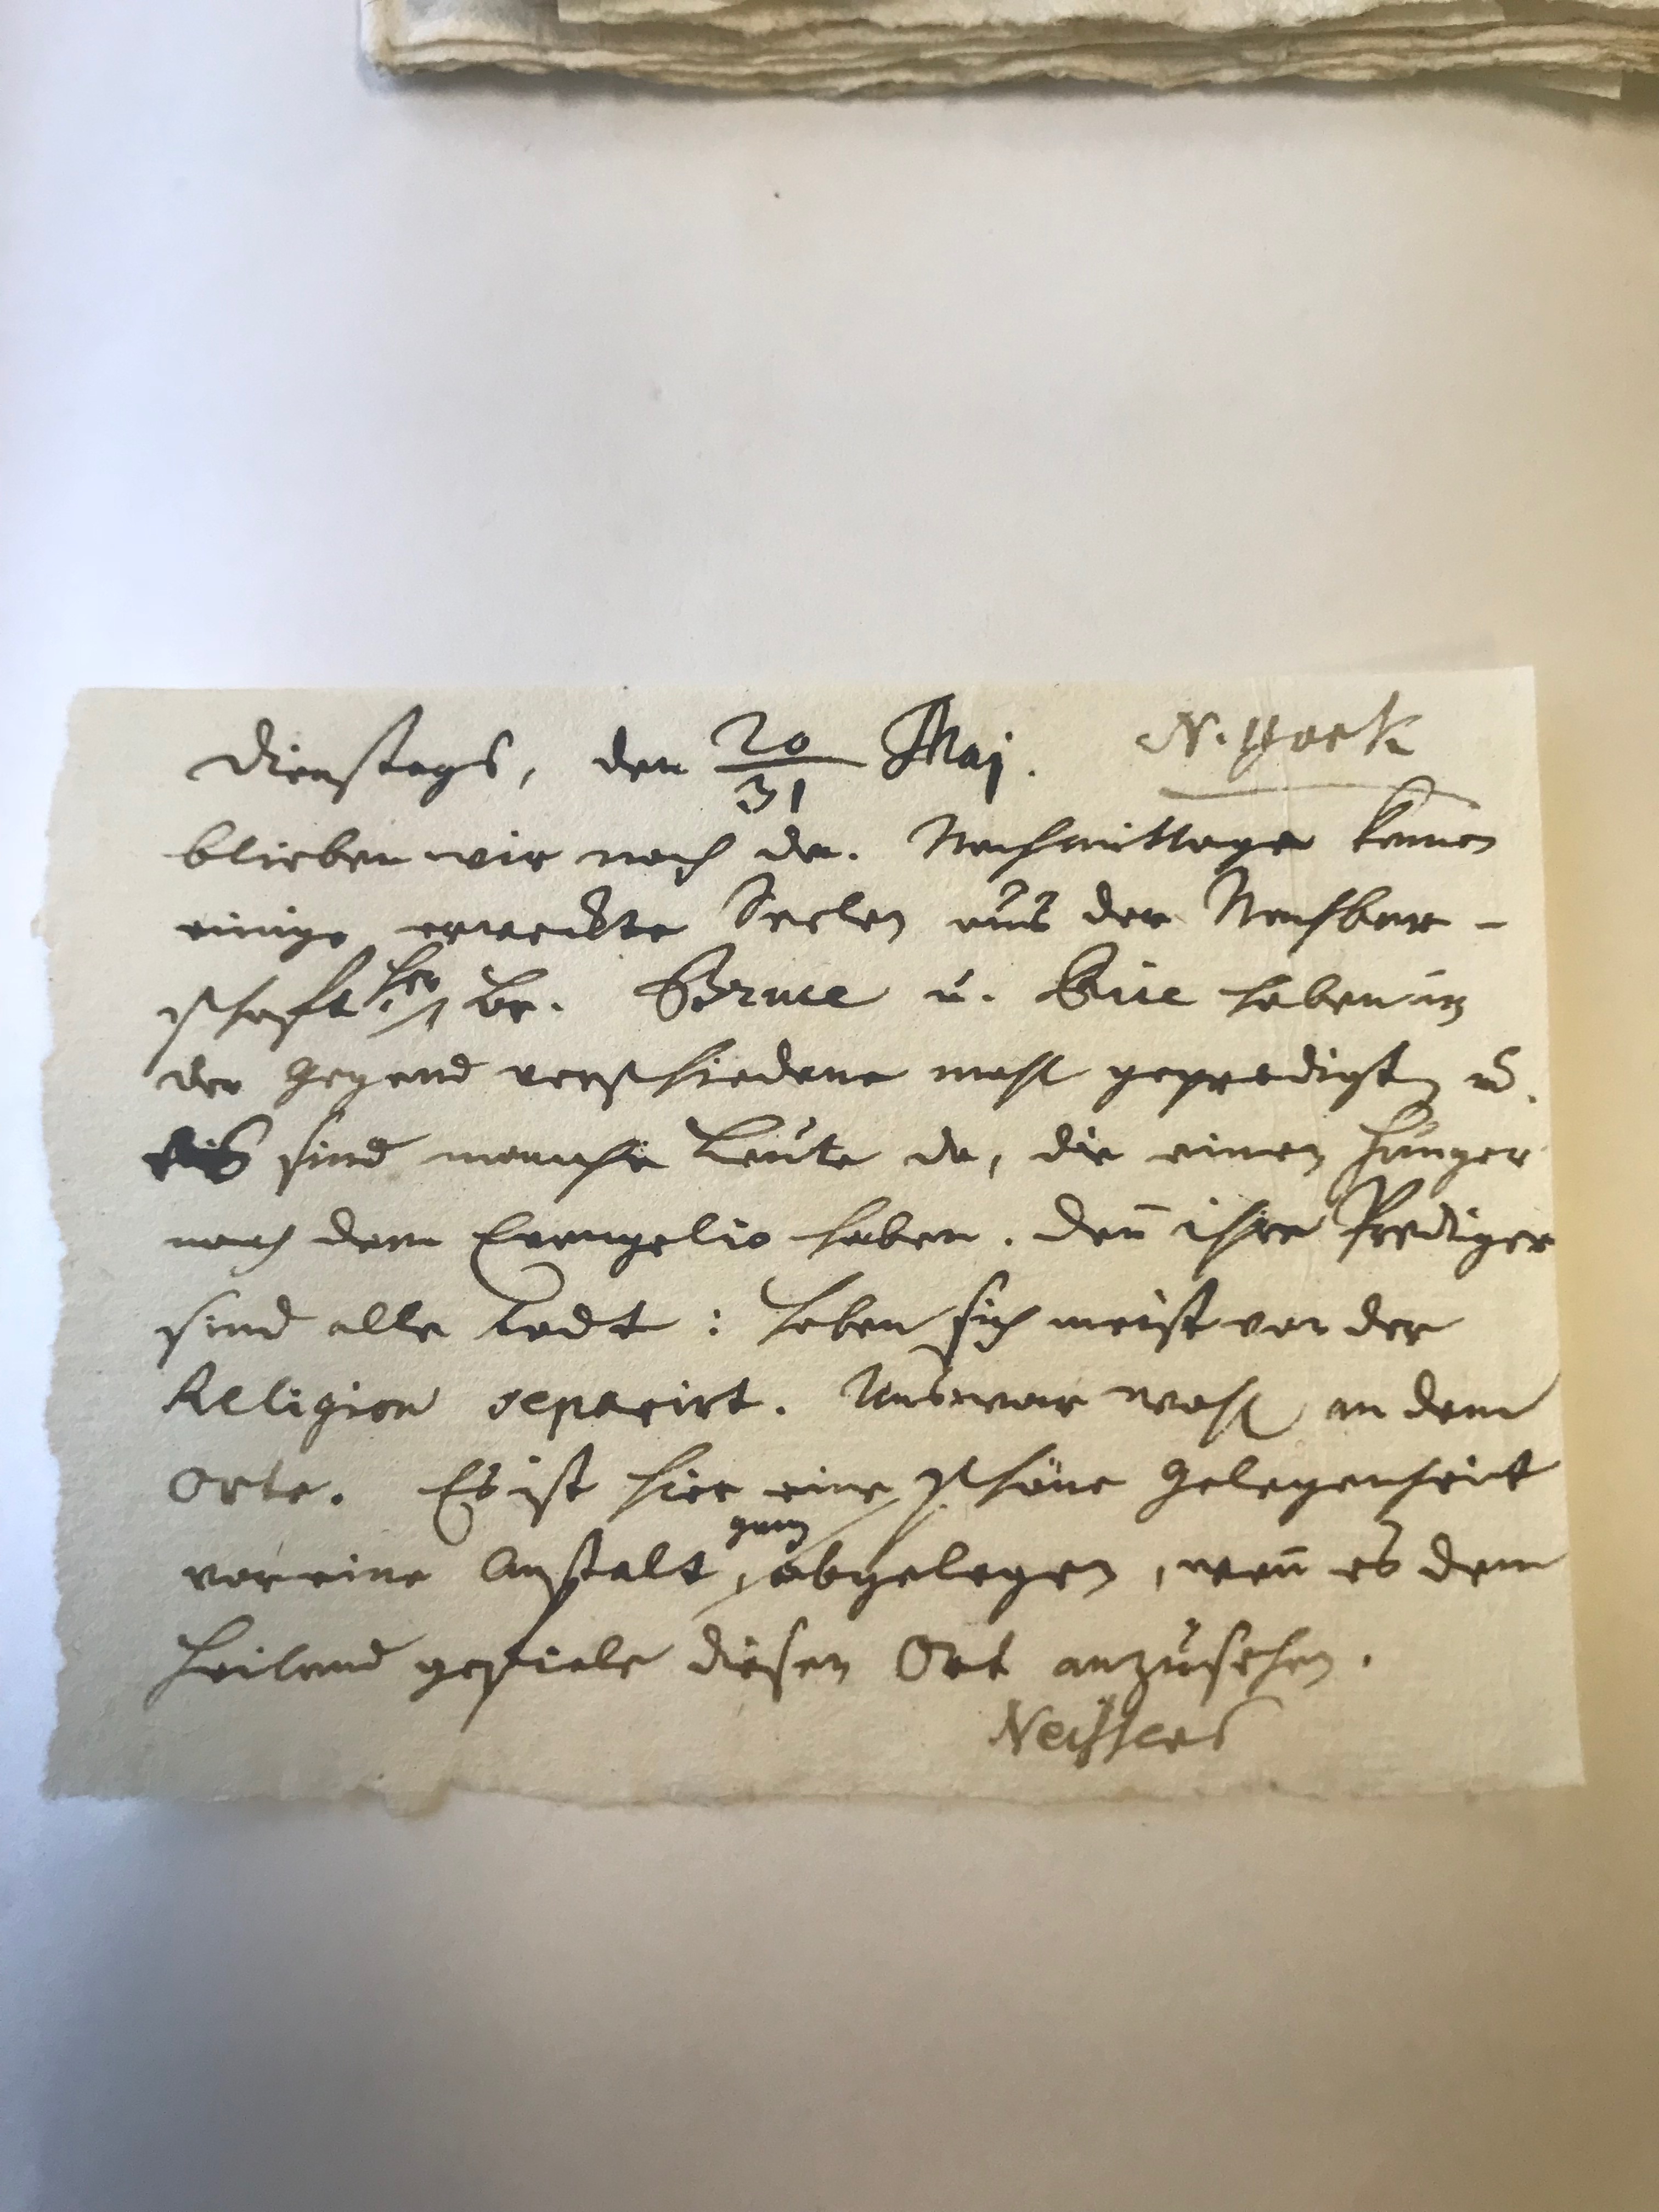 Dienstags, den 20/31 Maj. N. York
blieben wir noch da. Nachmittage kamen
einige erweckte Seelen aus der Nachbar-
schafft her, Br. Bruce u. Büe haben in
der Gegend verschiedene mahl geprediget, u.
es sind manche Leute da, die einen Hunger
nach dem Evangelio haben. Den̄ ihre Prediger
sind alle todt: haben sich meist von der
Religion separirt. Uns war wohl an dem
Orte. Es ist hier eine schöne Gelegenheit
vor eine Anstalt, ganz abgelegen, wen̄ es dem
Heiland gefiele diesen Ort anzusehen.
Neissers